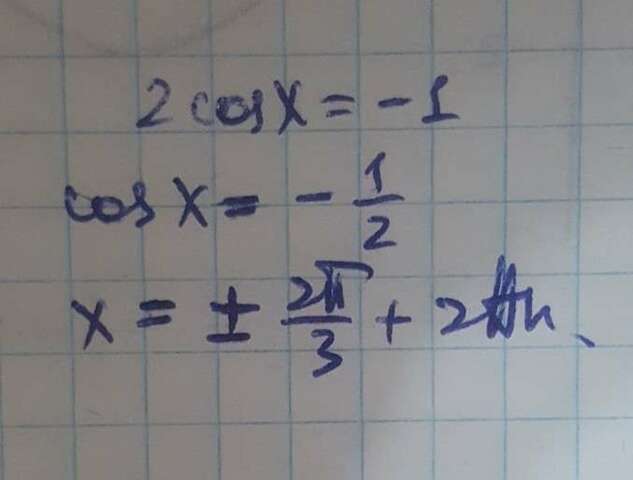 2 cos x = -1
cos x = - 1/2
x = ± 2π/3 + 2πn,